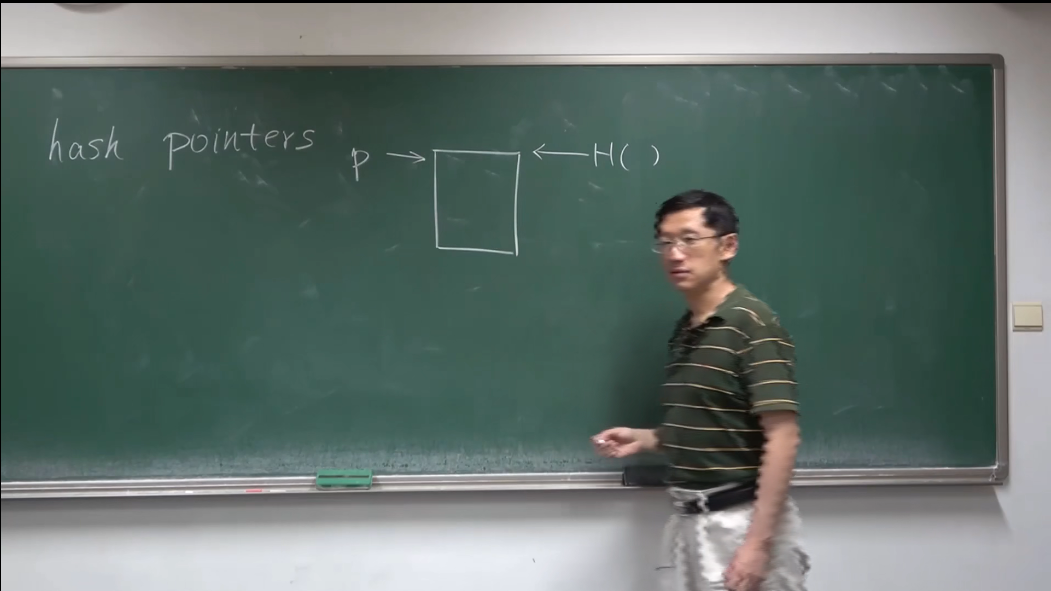 hash pointers p → ← H( )